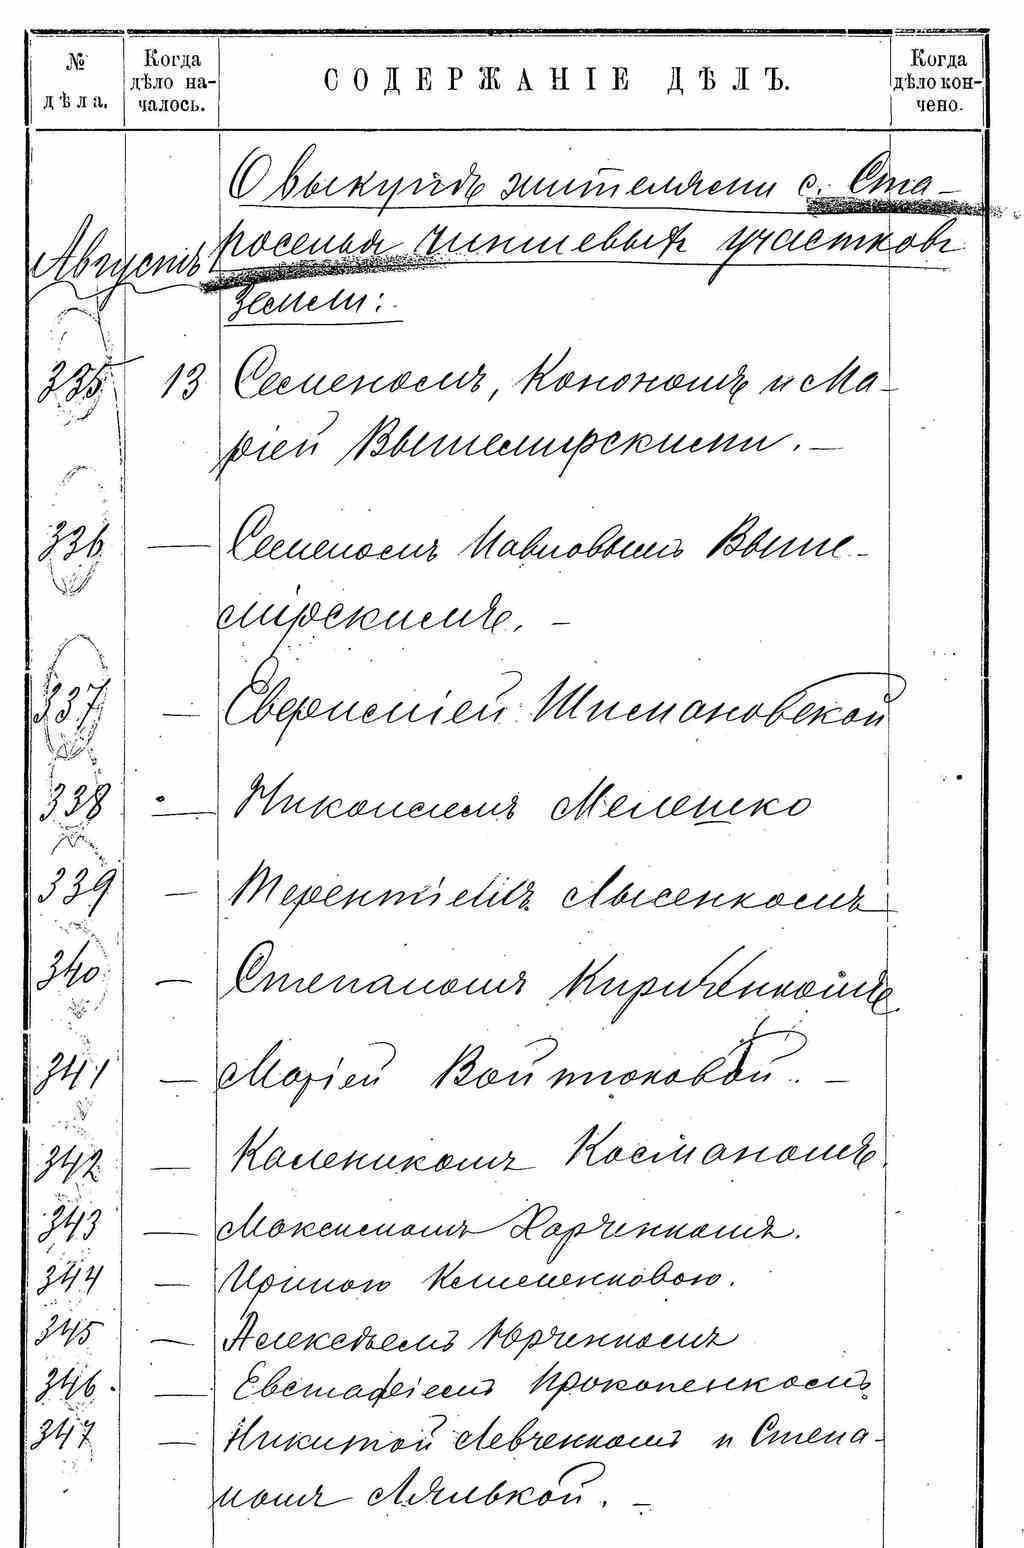 № дѣла.
Когда дѣло началось.
СОДЕРЖАНІЕ ДѢЛЪ.
Когда дѣло кончено.
О выкупѣ жителями с. Ста-
Августъ
роселья чиншевыхъ участковъ
земли:
335 13 Семеномъ, Конономъ и Ма-
ріей Вышемирскими. —
336 — Семеномъ Павловымъ Выше-
мірскимъ. —
337 — Евфиміей Шимановской
338 — Никол Мелешко
339 — Терентіемъ Лысенкомъ
340 — Степаномъ Кириченкомъ
341 — Маріей Войтюковой. —
342 — Каленикомъ Косманомъ.
343 — Максимомъ Харченкомъ.
344 — Ириною Клименковою.
345 — Алексѣемъ Юрченкомъ
346. — Евстафіемъ Прокопенкомъ
347 — Никитой Левченкомъ и Степа-
номъ Лялькой. —